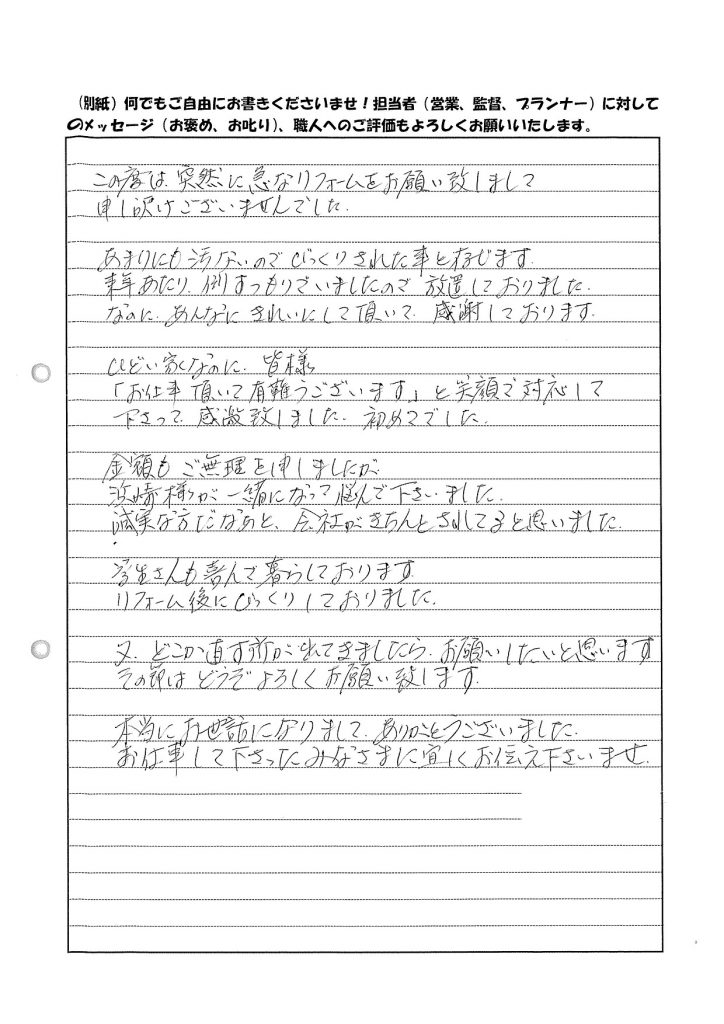 （別紙）何でもご自由にお書きくださいませ！担当者（営業、監督、プランナー）に対して
のメッセージ（お褒め、お叱り）、職人へのご評価もよろしくお願いいたします。
この度は、突然に急なリフォームをお願い致しまして
申し訳けございませんでした。
あまりにも汚ないのでびっくりされた事と存じます。
来年あたり、倒すつもりでいましたので放置しておりました。
なのに、あんなにきれいにして頂いて、感謝しております。
ひどい家なのに、皆様
「お仕事頂いて有難うございます」と笑顔で対応して
下さって、感激致しました。初めてでした。
金額もご無理を申しましたが、
浜崎様が一緒になって悩んで下さいました。
誠実な方だなあと、会社がきちんとされてると思いました。
学生さんも喜んで暮らしております。
リフォーム後にびっくりしておりました。
又、どこか直す所が出てきましたら、お願いしたいと思います
その節はどうぞよろしくお願い致します。
本当にお世話になりまして、ありがとうございました。
お仕事して下さったみなさまに宜しくお伝え下さいませ。